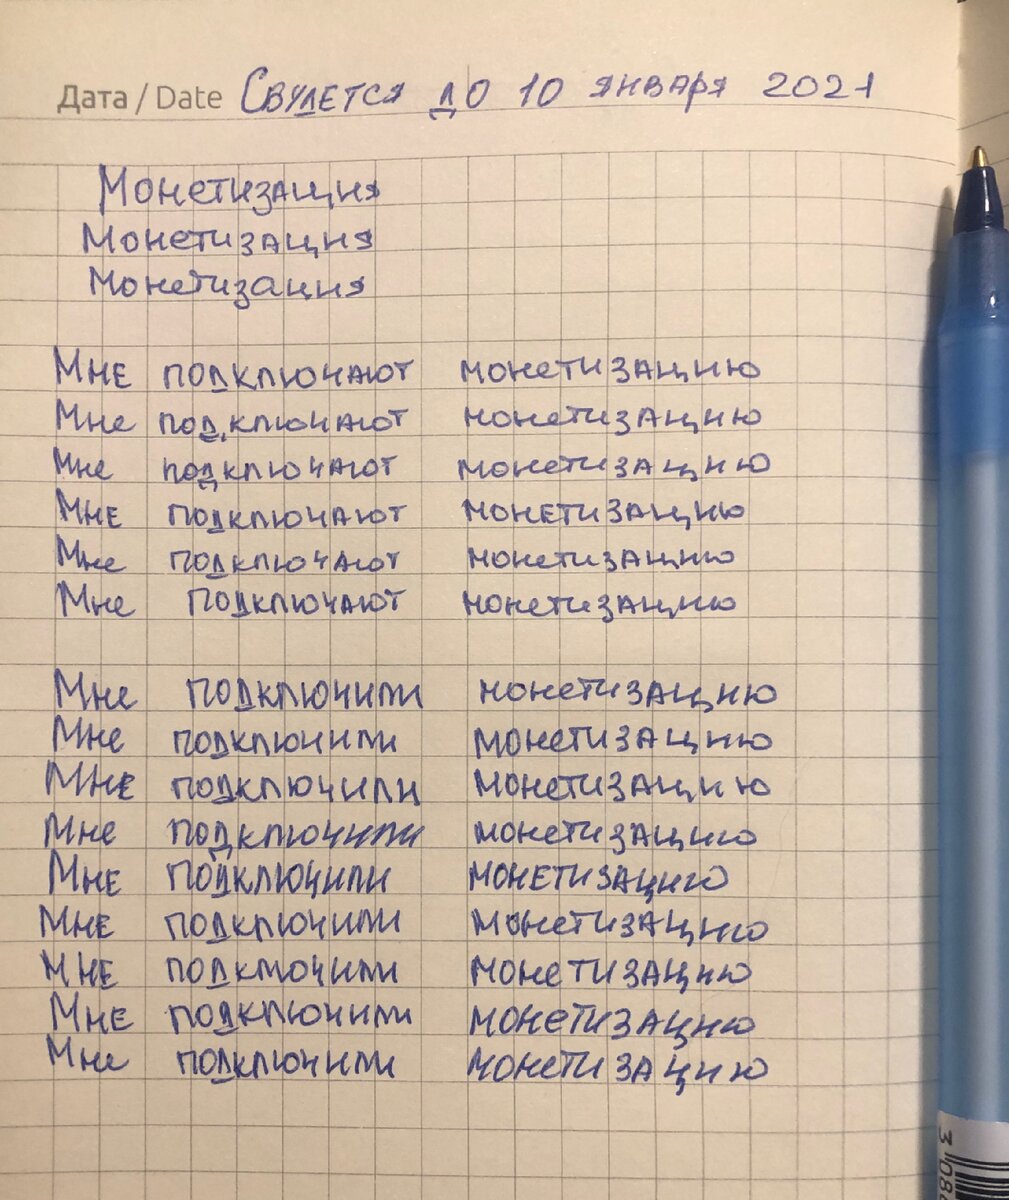 Дата / Date Свулется до 10 января 2021
Монетизация
Монетизация
Монетизация
Мне подключают монетизацию
Мне подключают монетизацию
Мне подключают монетизацию
Мне подключают монетизацию
Мне подключают монетизацию
Мне подключают монетизацию
Мне подключили монетизацию
Мне подключили монетизацию
Мне подключили монетизацию
Мне подключили монетизацию
Мне подключили монетизацию
Мне подключили монетизацию
Мне подключили монетизацию
Мне подключили монетизацию
Мне подключили монетизацию
3 08